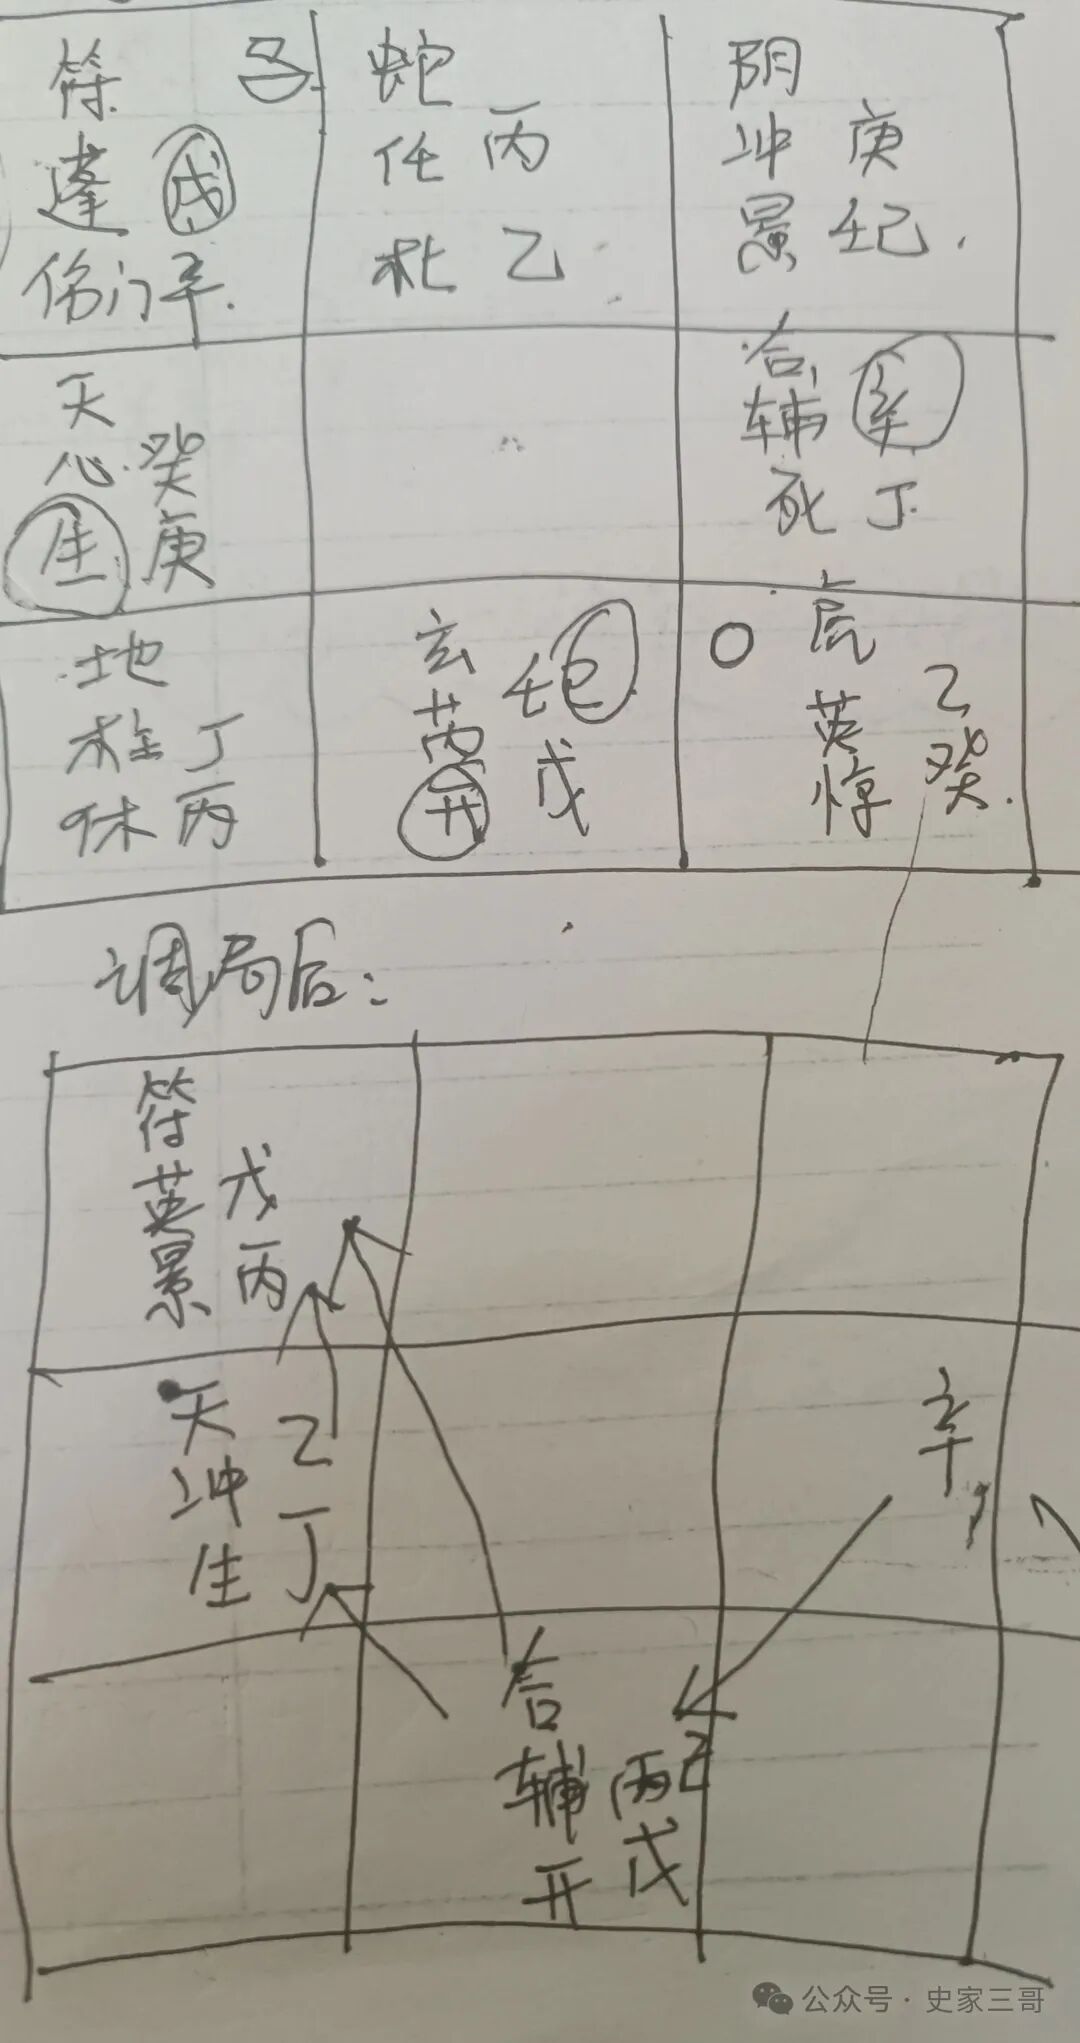 符
蓬 戊
伤门 辛
蛇
任 丙
杜 乙
阴
冲 庚
景 壬己
天
心 癸
生 庚
合
辅 辛
死 丁
地
柱 丁
休 丙
玄
芮 壬己
开 戊
虎
英 乙
惊 癸
调局后:
符
英 戊
景 丙
天 乙
冲 丁
生
辛
合
辅 丙己
开 戊
公众号·史家三哥